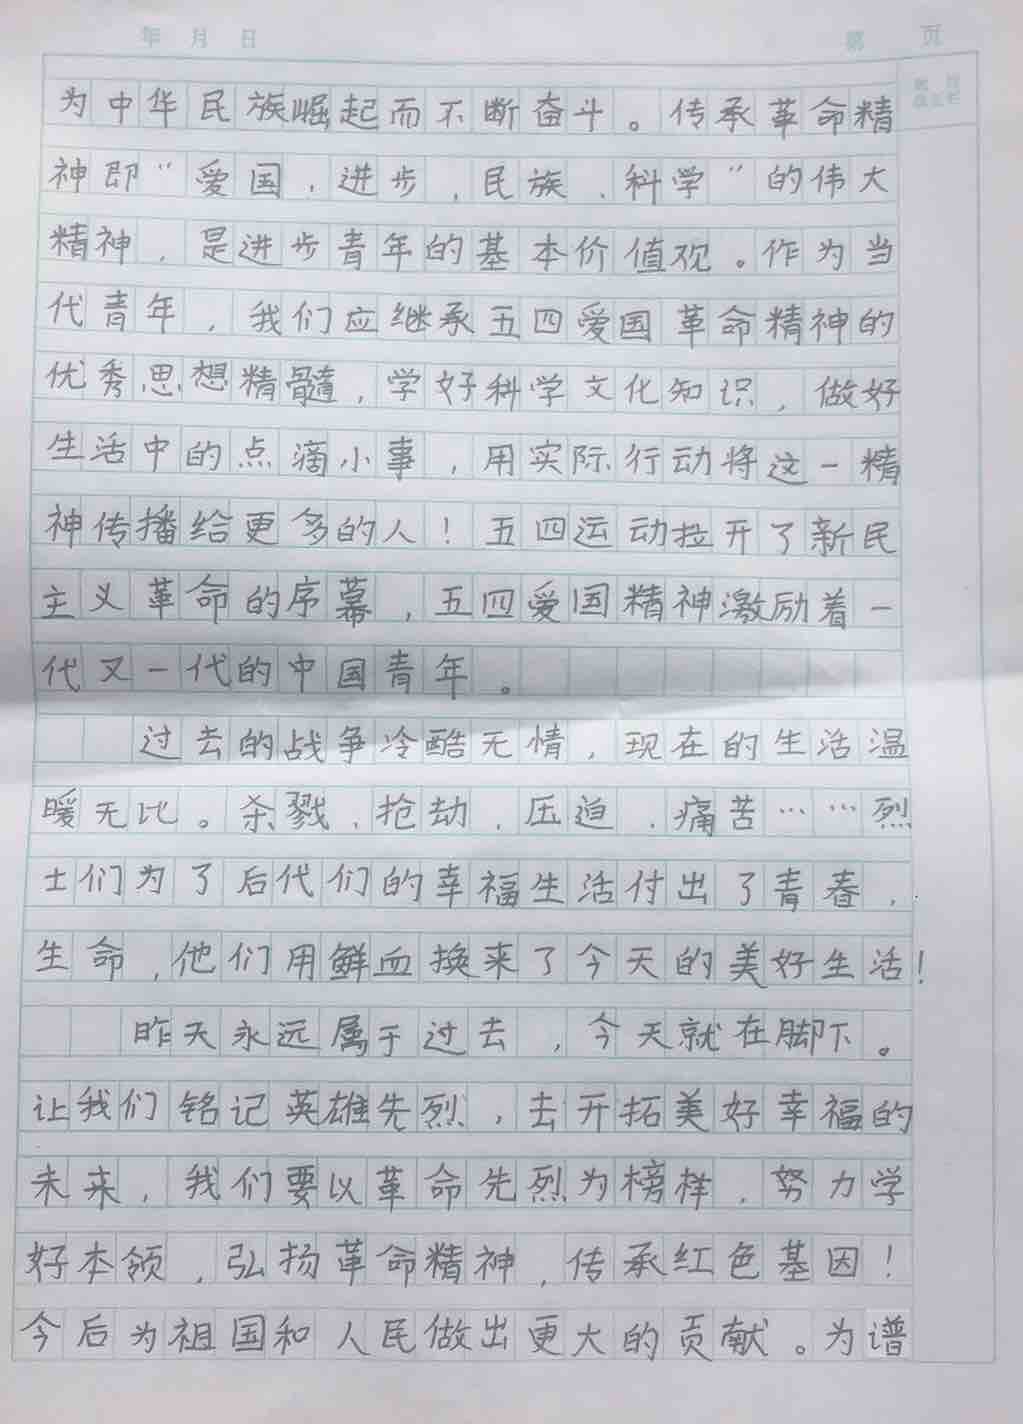 年 月 日 第 页
为中华民族崛起而不断奋斗。传承革命精
神即“爱国，进步，民族、科学”的伟大
精神，是进步青年的基本价值观。作为当
代青年，我们应继承五四爱国革命精神的
优秀思想精髓，学好科学文化知识，做好
生活中的点滴小事，用实际行动将这一精
神传播给更多的人！五四运动拉开了新民
主义革命的序幕，五四爱国精神激励着一
代又一代的中国青年。
过去的战争冷酷无情，现在的生活温
暖无比。杀戮，抢劫，压迫，痛苦……烈
士们为了后代们的幸福生活付出了青春，
生命，他们用鲜血换来了今天的美好生活！
昨天永远属于过去，今天就在脚下。
让我们铭记英雄先烈，去开拓美好幸福的
未来，我们要以革命先烈为榜样，努力学
好本领，弘扬革命精神，传承红色基因！
今后为祖国和人民做出更大的贡献。为谱